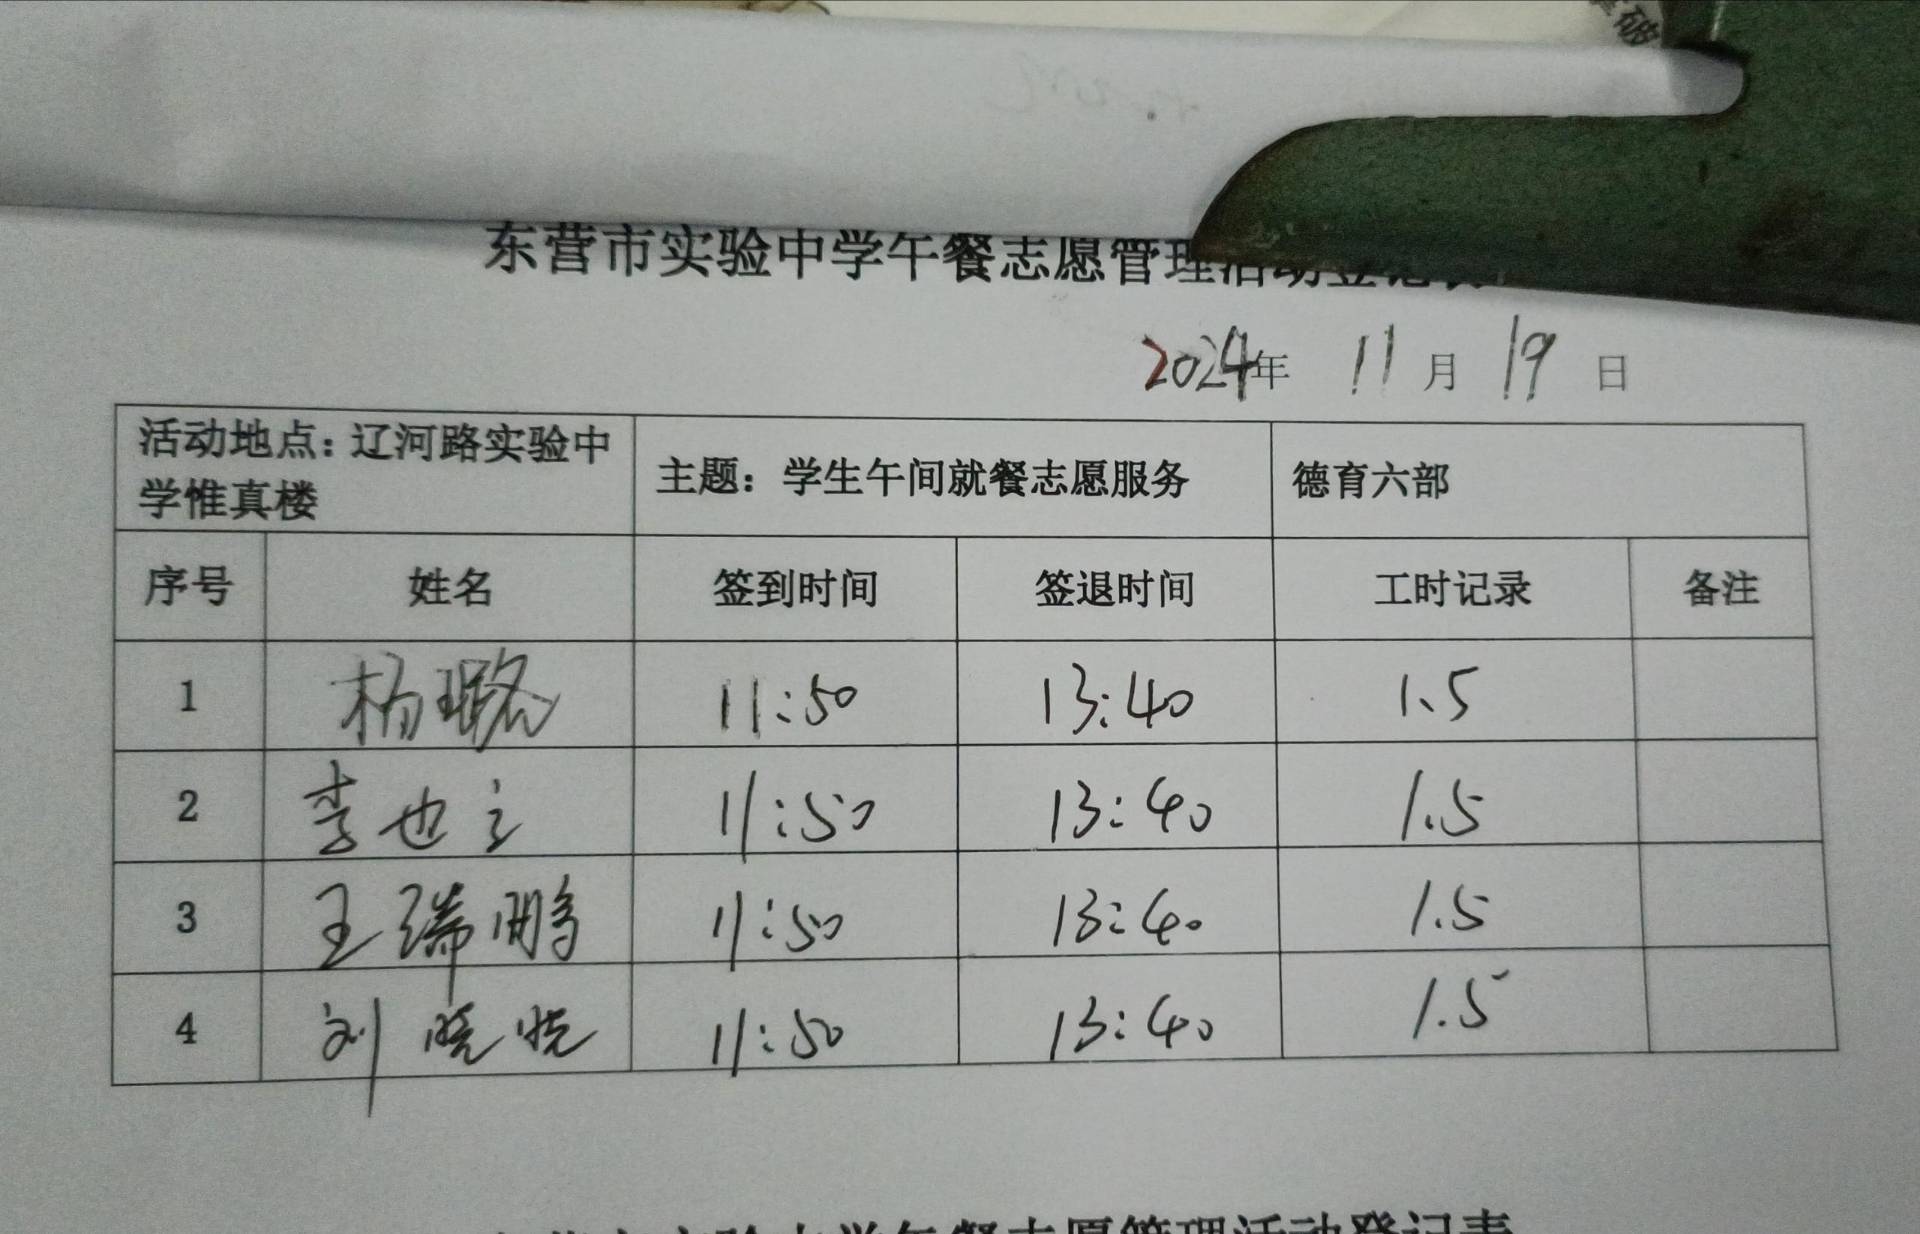 破
东营市实验中学午餐志愿管理活动登记表
2024年 11月 19日
活动地点：辽河路实验中
学惟真楼
主题：学生午间就餐志愿服务
德育六部
序号 姓名 签到时间 签退时间 工时记录 备注
1 杨璐 11:50 13:40 1.5
2 李也 11:50 13:40 1.5
3 王瑞鹏 11:50 13:40 1.5
4 刘晓 11:50 13:40 1.5
东营市实验中学午餐志愿管理活动登记表